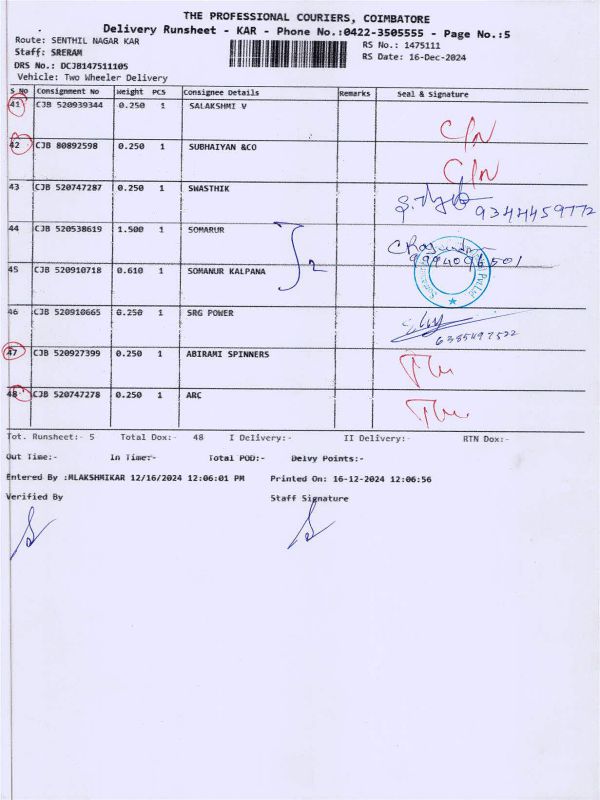 THE PROFESSIONAL COURIERS, COIMBATORE
Delivery Runsheet - KAR - Phone No.:0422-3505555 - Page No.:5
Route: SENTHIL NAGAR KAR RS No.: 1475111
Staff: SRERAM RS Date: 16-Dec-2024
DRS No.: DCJB147511105
Vehicle: Two Wheeler Delivery
S No Consignment No Weight PCS Consignee Details Remarks Seal & Signature
41 CJB 520939344 0.250 1 SALAKSHMI V C/N
42 CJB 80892598 0.250 1 SUBHAIYAN &CO C/N
43 CJB 520747287 0.250 1 SWASTHIK 9344459772
44 CJB 520538619 1.500 1 SOMARUR
9994096501
45 CJB 520910718 0.610 1 SOMANUR KALPANA
46 CJB 520910665 0.250 1 SRG POWER
6385497522
47 CJB 520927399 0.250 1 ABIRAMI SPINNERS
48 CJB 520747278 0.250 1 ARC
Tot. Runsheet:- 5 Total Dox:- 48 I Delivery:- II Delivery:- RTN Dox:-
Out Time:- In Time:- Total POD:- Delvy Points:-
Entered By :MLAKSHMIKAR 12/16/2024 12:06:01 PM Printed On: 16-12-2024 12:06:56
Verified By Staff Signature